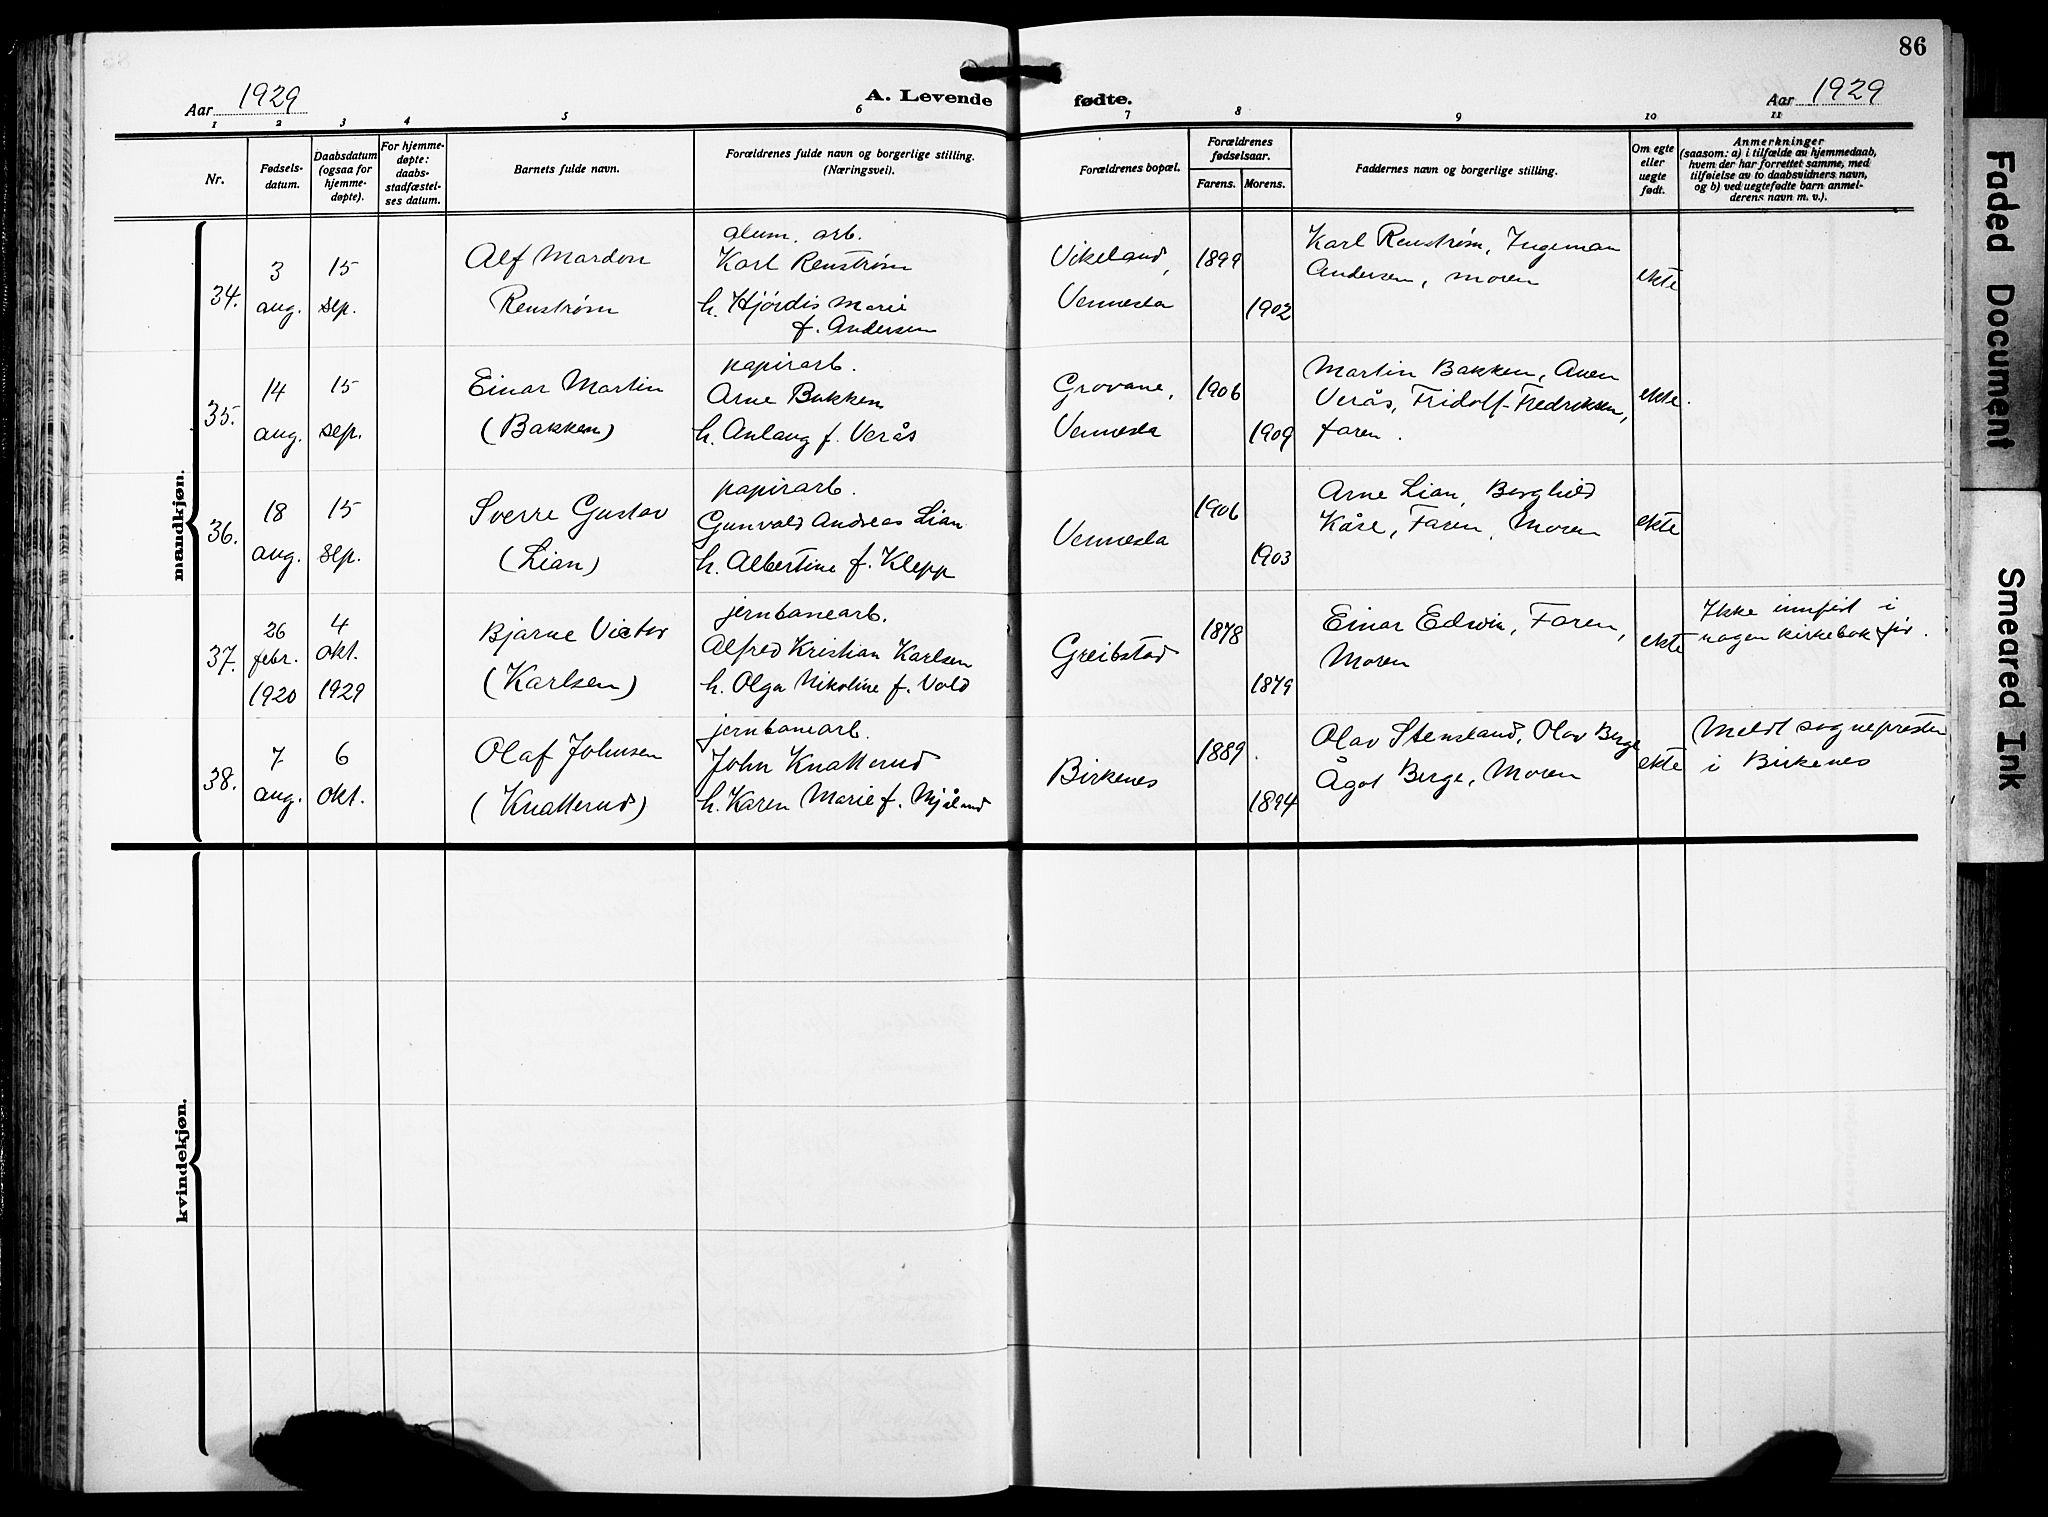 86
Aar 1929
A. Levende fødte.
Aar 1929
1 2 3 4 5 6 7 8 9 10 11
Nr.
Fødsels-
datum.
Daabsdatum
(ogsaa for
hjemme-
døpte).
For hjemme-
døpte:
daabs-
stadfæstel-
ses datum.
Barnets fulde navn.
Forældrenes fulde navn og borgerlige stilling.
(Næringsvei).
Forældrenes bopæl.
Forældrenes
fødselsaar.
Farens. Morens.
Faddernes navn og borgerlige stilling.
Om egte
eller
uegte
født.
Anmerkninger
(saasom: a) i tilfælde av hjemmedaab,
hvem der har forrettet samme, med
tilføielse av to daabsvidners navn,
og b) ved uegtefødte barn anmel-
derens navn m. v.).
mandkjøn.
34.
3
aug.
15
sep.
Alf Mardon
Renstrøm
alum. arb.
Karl Renstrøm
h. Hjördis Marie
f. Andersen
Vikeland,
Vennesla
1899
1902
Karl Renstrøm, Ingeman
Andersen, moren
ekte
35.
14
aug.
15
sep.
Einar Martin
(Bakken)
papirarb.
Arne Bakken
h. Anlaug f. Verås
Grovane,
Vennesla
1906
1909
Martin Bakken, Anen
Verås, Fridolf Fredriksen,
faren.
ekte.
36.
18
aug.
15
sep.
Sverre Gustav
(Lian)
papirarb.
Gunvald Andreas Lian
h. Albertine f. Klepp
Vennesla
1906
1903
Arne Lian, Borghild
Kåre, Faren, Moren
ekte
37.
26
febr.
1920
4
okt.
1929
Bjarne Victor
(Karlsen)
jernbanearb.
Alfred Kristian Karlsen
h. Olga Nikoline f. Vold
Greibstad
1878
1879
Einar Edwin, Faren,
Moren
ekte
Ikke innført i
nogen kirkebok før.
38.
7
aug.
6
okt.
Olaf Johnsen
(Knatterud)
jernbanearb.
John Knatterud
h. Karen Marie f. Mjåland
Birkenes
1889
1894
Olav Stensland, Olav Berge
Ågot Berge, Moren
ekte
Meldt sognepresten
i Birkenes
kvindekjøn.
Faded Document
Smeared Ink